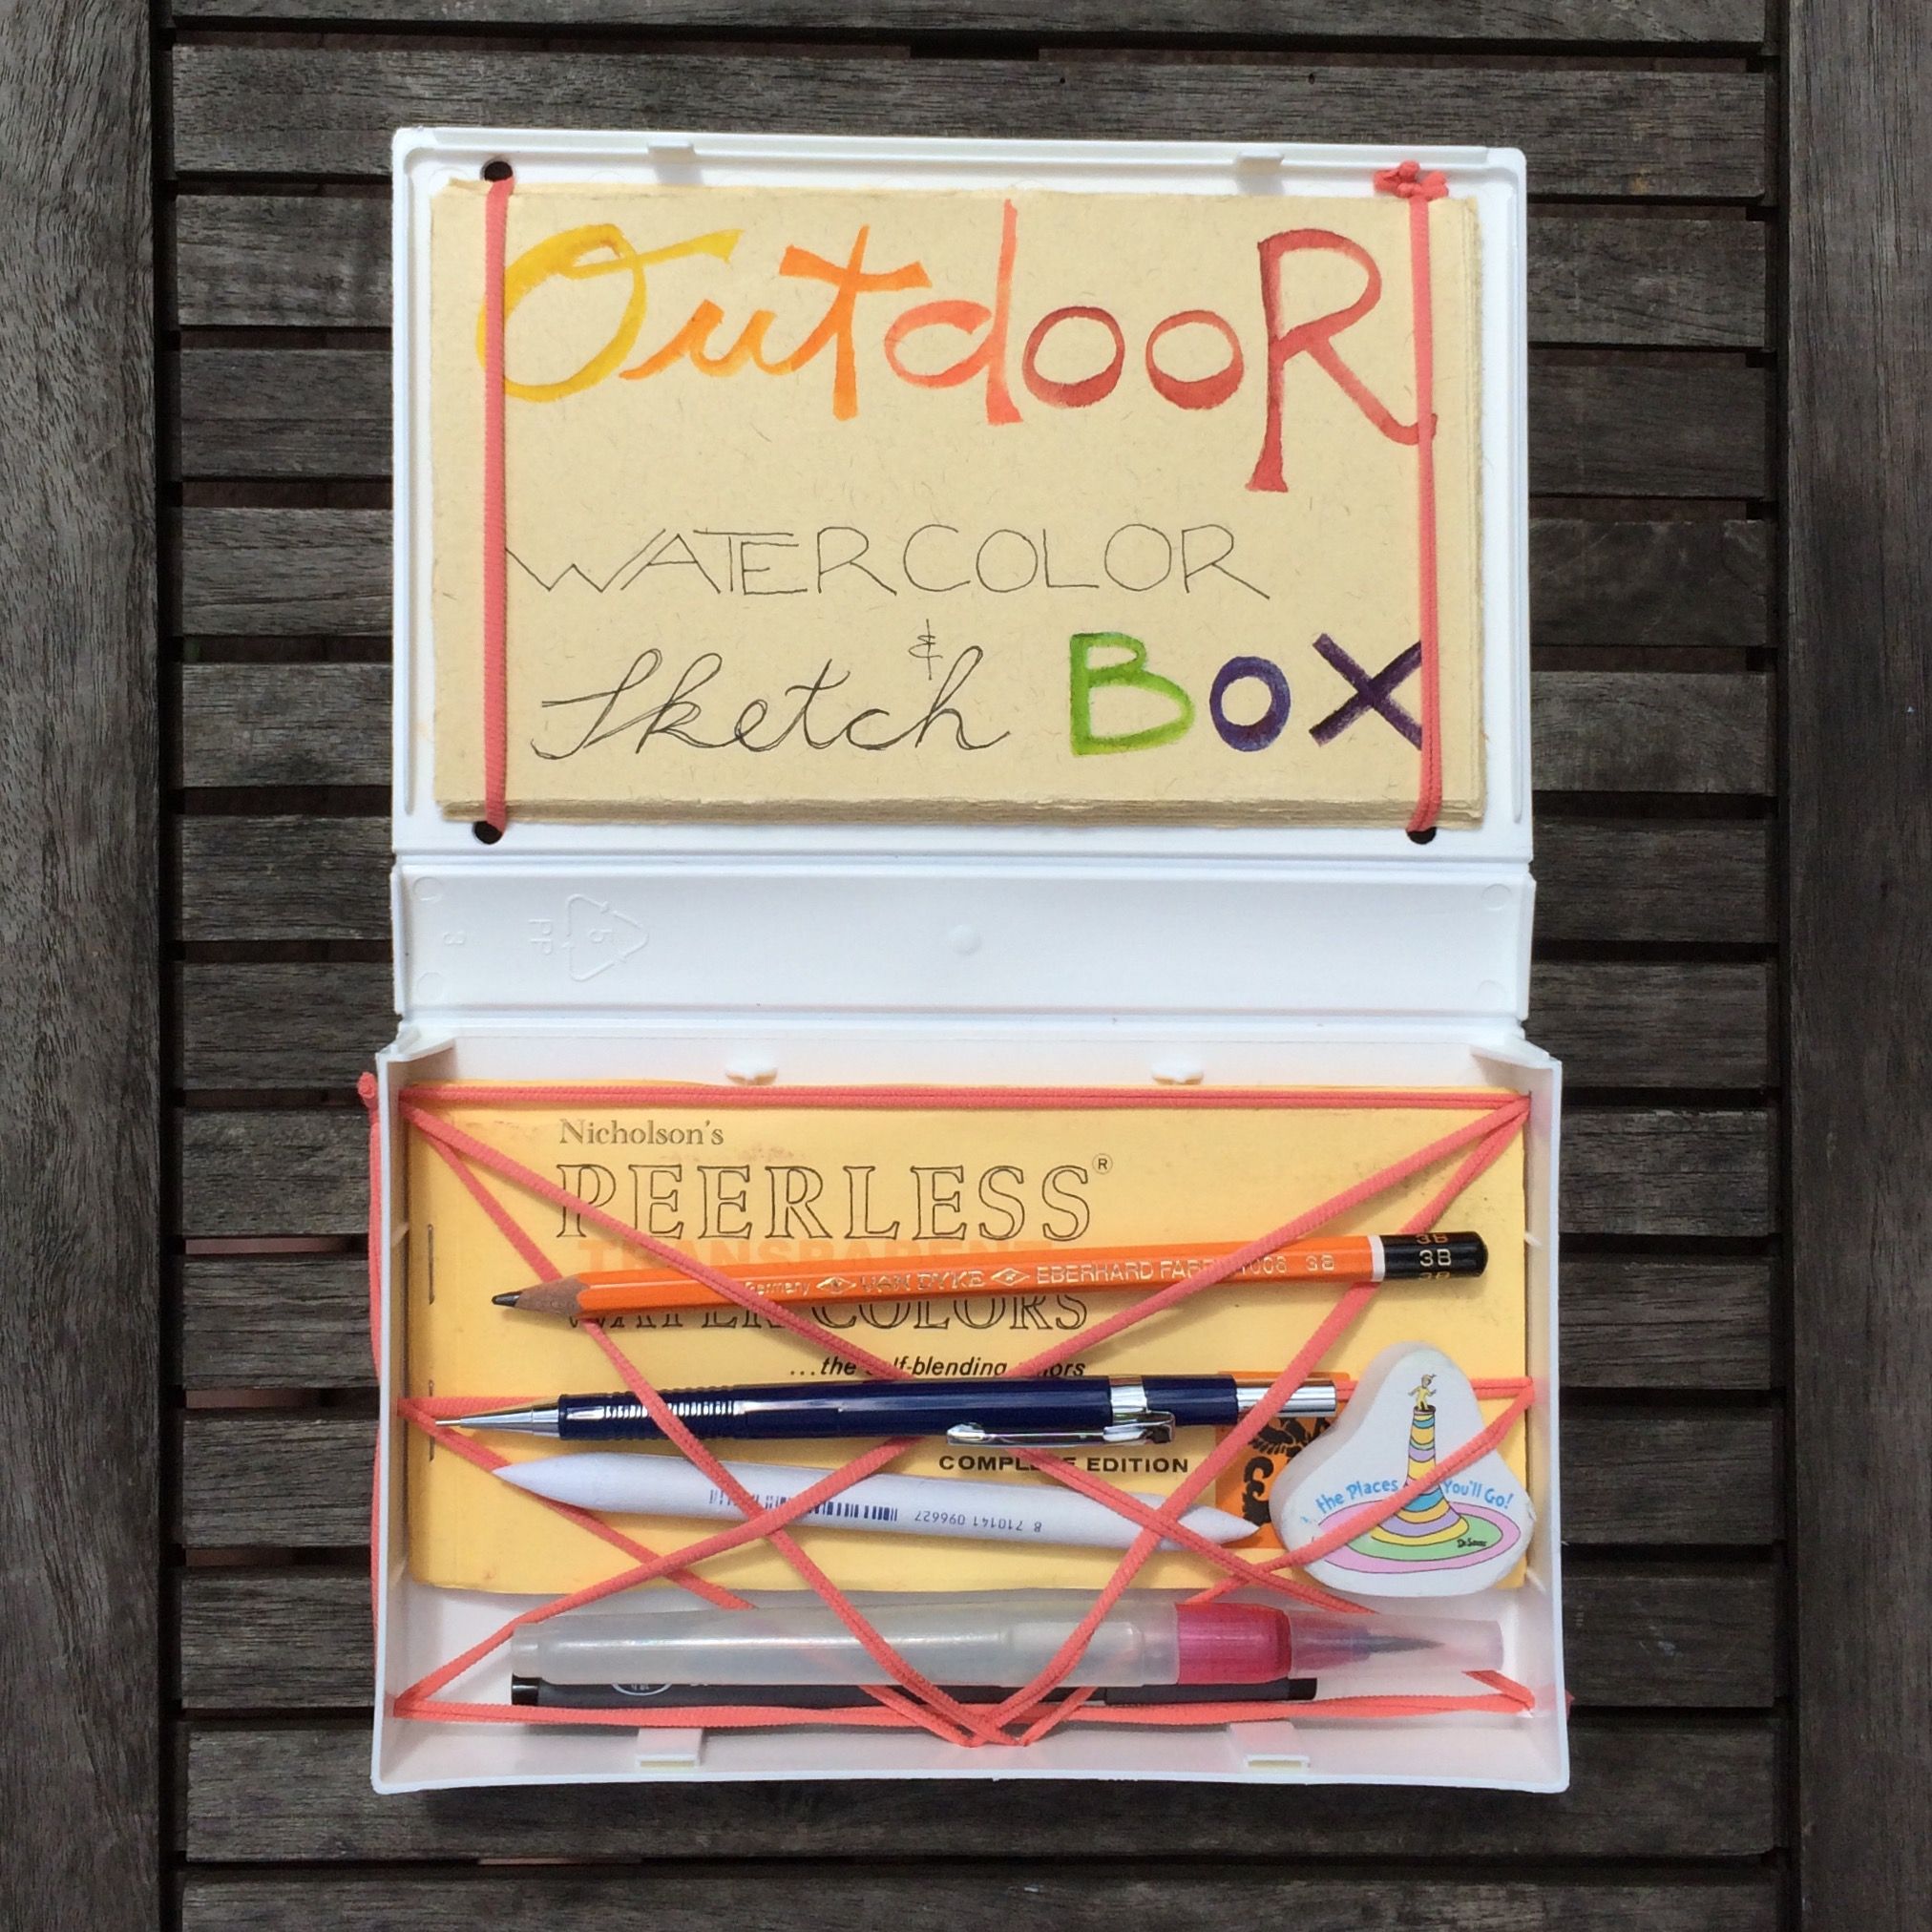 OutdooR
WATERCOLOR
&
Sketch BOX
5
PP
3
Nicholson's
PEERLESS®
TRANSPARENT
Germany VAN DYKE EBERHARD FABER 3B
3B
WATER COLORS
...the self-blending colors
COMPLETE EDITION
8 710141 096627
the Places You'll Go!
Dr. Seuss